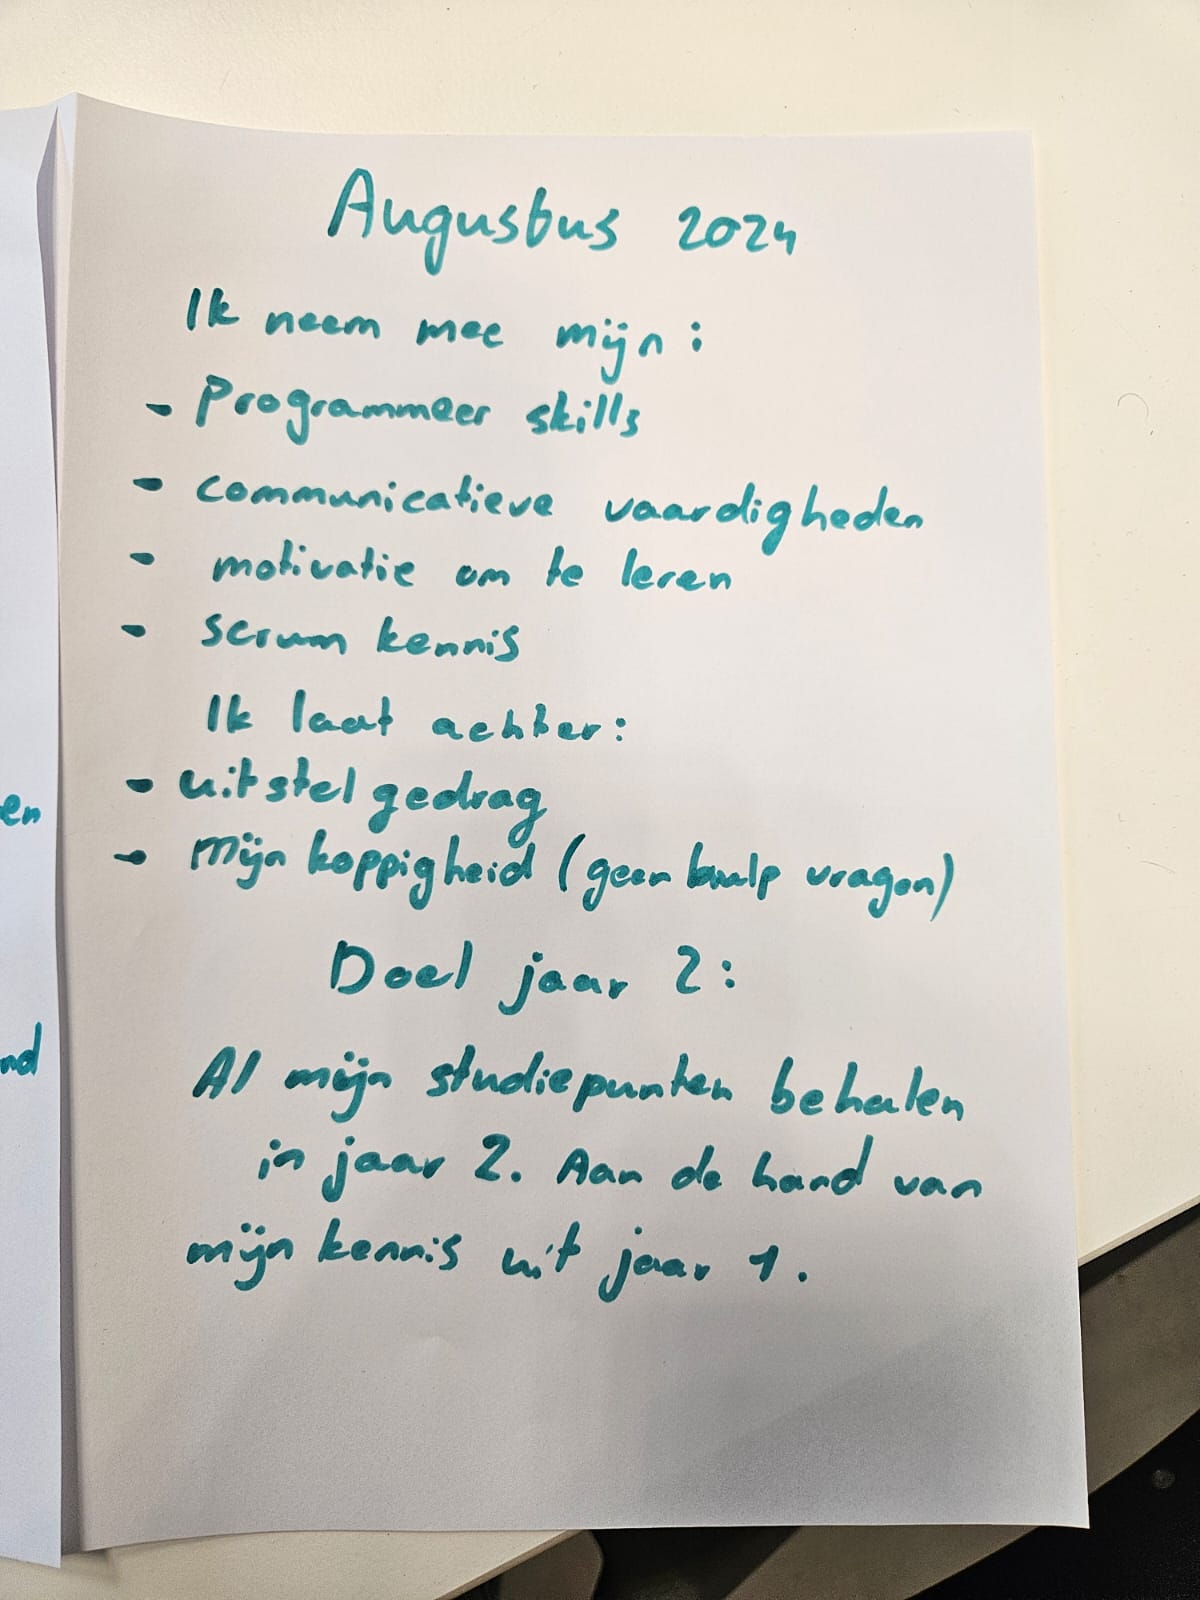 Augustus 2024
Ik neem mee mijn:
- Programmeer skills
- communicatieve vaardigheden
- motivatie om te leren
- scrum kennis
Ik laat achter:
- uitstel gedrag
- Mijn koppigheid (geen hulp vragen)
Doel jaar 2:
Al mijn studiepunten behalen
in jaar 2. Aan de hand van
mijn kennis uit jaar 1.
en
nd